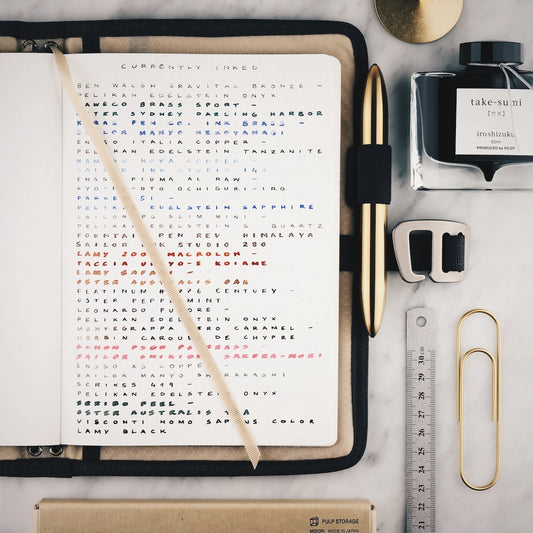 CURRENTLY INKED
BEN WALSH GRAVITAS BRONZE -
PELIKAN EDELSTEIN ONYX
KAWECO BRASS SPORT -
OSTER SYDNEY DARLING HARBOR
KARAS PEN CO. INK BRASS -
SAILOR MANYO NEKOYANAGI
ENSSO ITALIA COPPER -
PELIKAN EDELSTEIN TANZANITE
NOVA COPPER -
SAILOR INK STUDIO 143
ENSSO PIUMA AL RAW -
KYO-NO-OTO OCHIGURI-IRO
PARKER 51 -
PELIKAN EDELSTEIN SAPPHIRE
SAILOR PG SLIM MINI -
PELIKAN EDELSTEIN QUARTZ
FOUNTAIN PEN REV HIMALAYA
SAILOR INK STUDIO 280
LAMY 2000 MACROLON -
TACCIA UKIYO-E KOIAME
LAMY SAFARI -
OSTER AUSTRALIS OAK
PLATINUM #3776 CENTURY -
OSTER PEPPERMINT
LEONARDO FURORE -
PELIKAN EDELSTEIN ONYX
MONTEGRAPPA ZERO CARAMEL -
HERBIN CAROUBE DE CHYPRE
ENSSO XS COPPER -
SAILOR MANYO SHIRAKASHI
SCRIKSS 419 -
PELIKAN EDELSTEIN ONYX
SCRIBO FEEL -
OSTER AUSTRALIS
VISCONTI HOMO SAPIENS COLOR
LAMY BLACK
take-sumi
【竹炭】
iroshizuku
50ml
PRODUCED by PILOT
30
29
28
27
26
25
24
23
22
21
PULP STORAGE
MIDORI MADE IN JAPAN